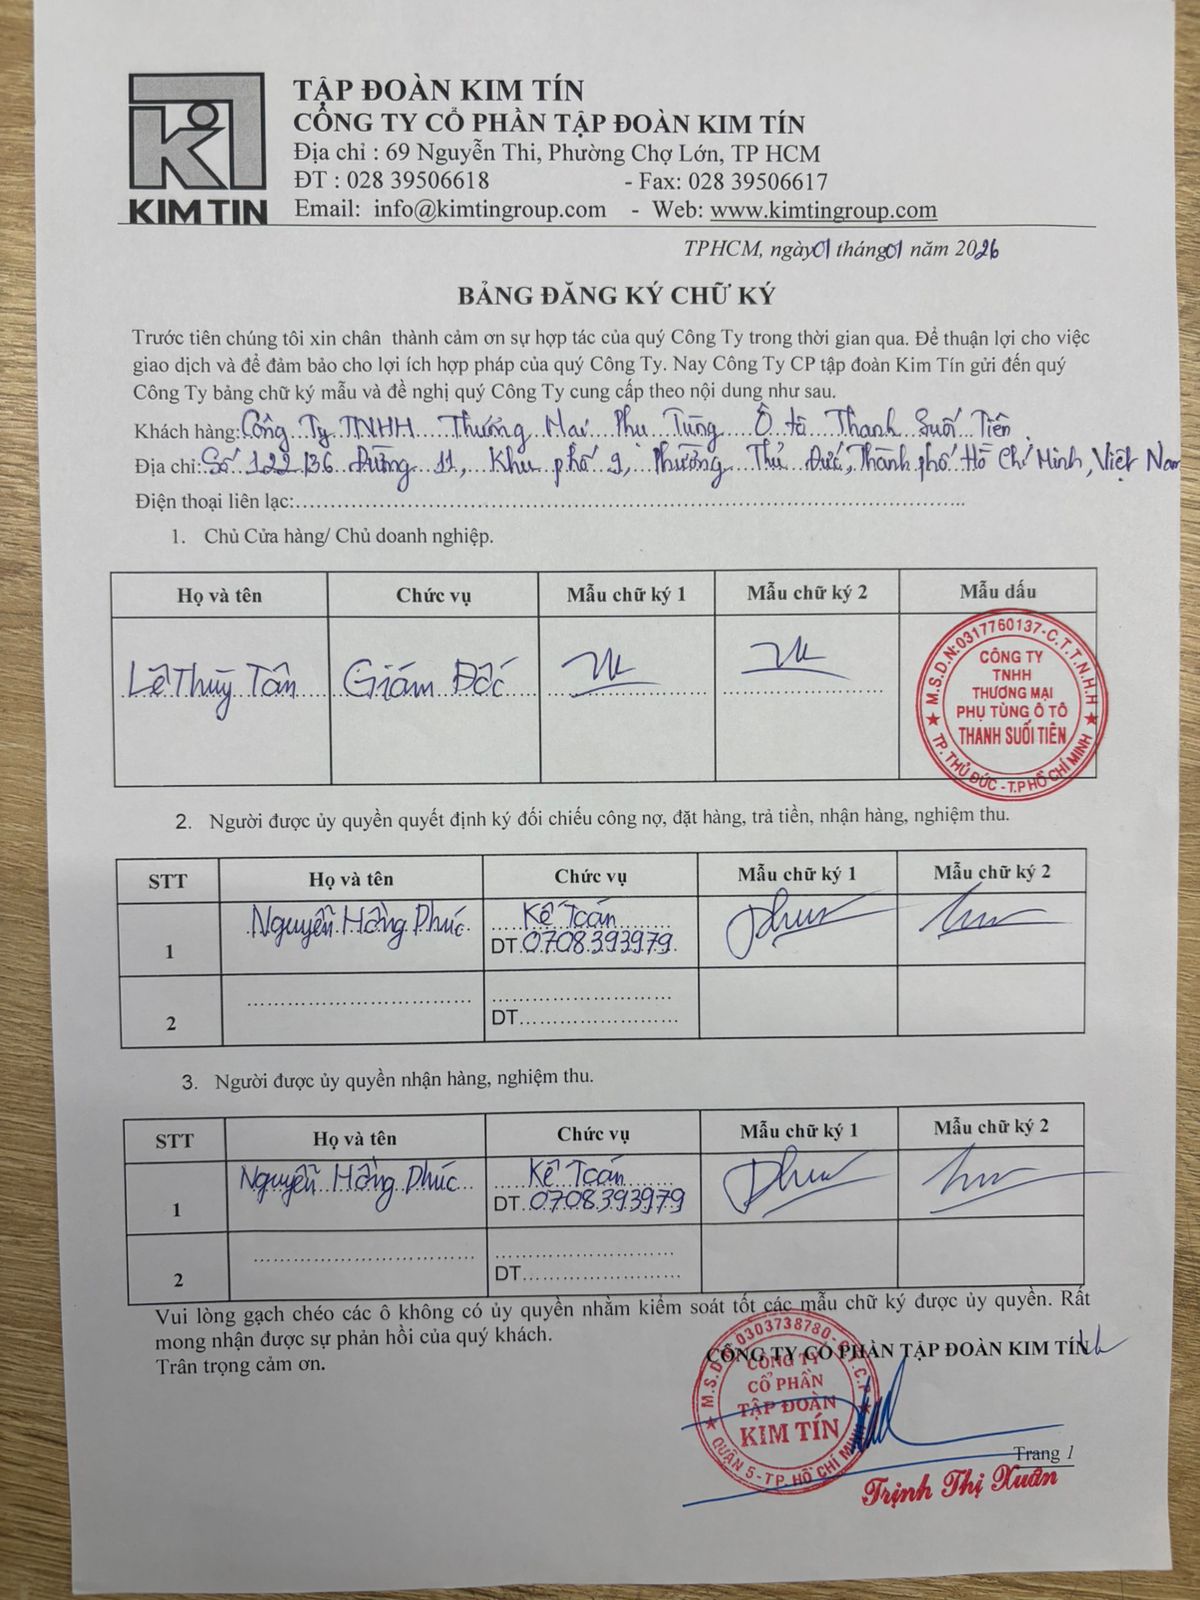 TẬP ĐOÀN KIM TÍN
CÔNG TY CỔ PHẦN TẬP ĐOÀN KIM TÍN
Địa chỉ : 69 Nguyễn Thi, Phường Chợ Lớn, TP HCM
ĐT : 028 39506618 - Fax: 028 39506617
Email: info@kimtingroup.com - Web: www.kimtingroup.com
KIM TIN
TPHCM, ngày 01 tháng 01 năm 2026
BẢNG ĐĂNG KÝ CHỮ KÝ
Trước tiên chúng tôi xin chân thành cảm ơn sự hợp tác của quý Công Ty trong thời gian qua. Để thuận lợi cho việc
giao dịch và để đảm bảo cho lợi ích hợp pháp của quý Công Ty. Nay Công Ty CP tập đoàn Kim Tín gửi đến quý
Công Ty bảng chữ ký mẫu và đề nghị quý Công Ty cung cấp theo nội dung như sau.
Khách hàng: Công Ty TNHH Thương Mại Phụ Tùng Ô tô Thanh Suối Tiên
Địa chỉ: Số 122/36 Đường 11, Khu phố 9, Phường Thủ Đức, Thành phố Hồ Chí Minh, Việt Nam
Điện thoại liên lạc:
1. Chủ Cửa hàng/ Chủ doanh nghiệp.
Họ và tên Chức vụ Mẫu chữ ký 1 Mẫu chữ ký 2 Mẫu dấu
Lê Thùy Tân Giám Đốc
M.S.D.N:0317760137-C.T.T.N.H.H
CÔNG TY
TNHH
THƯƠNG MẠI
PHỤ TÙNG Ô TÔ
THANH SUỐI TIÊN
TP. THỦ ĐỨC - T.P HỒ CHÍ MINH
2. Người được ủy quyền quyết định ký đối chiếu công nợ, đặt hàng, trả tiền, nhận hàng, nghiệm thu.
STT Họ và tên Chức vụ Mẫu chữ ký 1 Mẫu chữ ký 2
1 Nguyễn Hồng Phúc Kế Toán
DT 0708.393979
2
DT
3. Người được ủy quyền nhận hàng, nghiệm thu.
STT Họ và tên Chức vụ Mẫu chữ ký 1 Mẫu chữ ký 2
1 Nguyễn Hồng Phúc Kế Toán
DT 0708.393979
2
DT
Vui lòng gạch chéo các ô không có ủy quyền nhằm kiểm soát tốt các mẫu chữ ký được ủy quyền. Rất
mong nhận được sự phản hồi của quý khách.
Trân trọng cảm ơn.
CÔNG TY CỔ PHẦN TẬP ĐOÀN KIM TÍN
M.S.D.N:0303738780-C.T.C.P
CÔNG TY
CỔ PHẦN
TẬP ĐOÀN
KIM TÍN
QUẬN 5-T.P. HỒ CHÍ MINH
Trang 1
Trịnh Thị Xuân